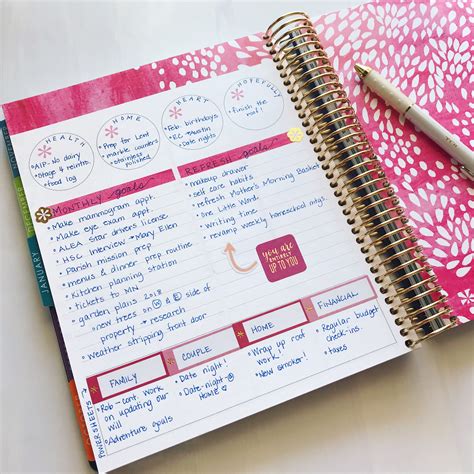 HEALTH
AIP - No dairy
Stage 4 reintro.
food log
HOME
Prep for Lent
marble counters
stainless
polished
HEART
Feb. birthdays
Date nights
HOPEFULLY
finish the
roof!
MONTHLY goals
Make mammogram appt.
Make eye exam appt.
ALEA Star drivers license
HSC Interview → Mary Ellen
Parish mission prep
menus & dinner prep routine
Kitchen planning station
tickets to MN
garden plans 2018
new trees on W & E side of
property → research
weather stripping front door
REFRESH goals
makeup drawer
self care habits
refresh Mother's Morning Basket
One Little Word
Writing time
revamp weekly homeschool mtgs.
you are
ENTIRELY
UP TO YOU
JANUARY
POWERSHEETS
FAMILY
Rob - cont. work
on updating our
Will
Adventure goals
COUPLE
Date night!
Date-night @
Home ♡
HOME
Wrap up roof
work!
New smoker!
FINANCIAL
Regular budget
check-ins.
taxes